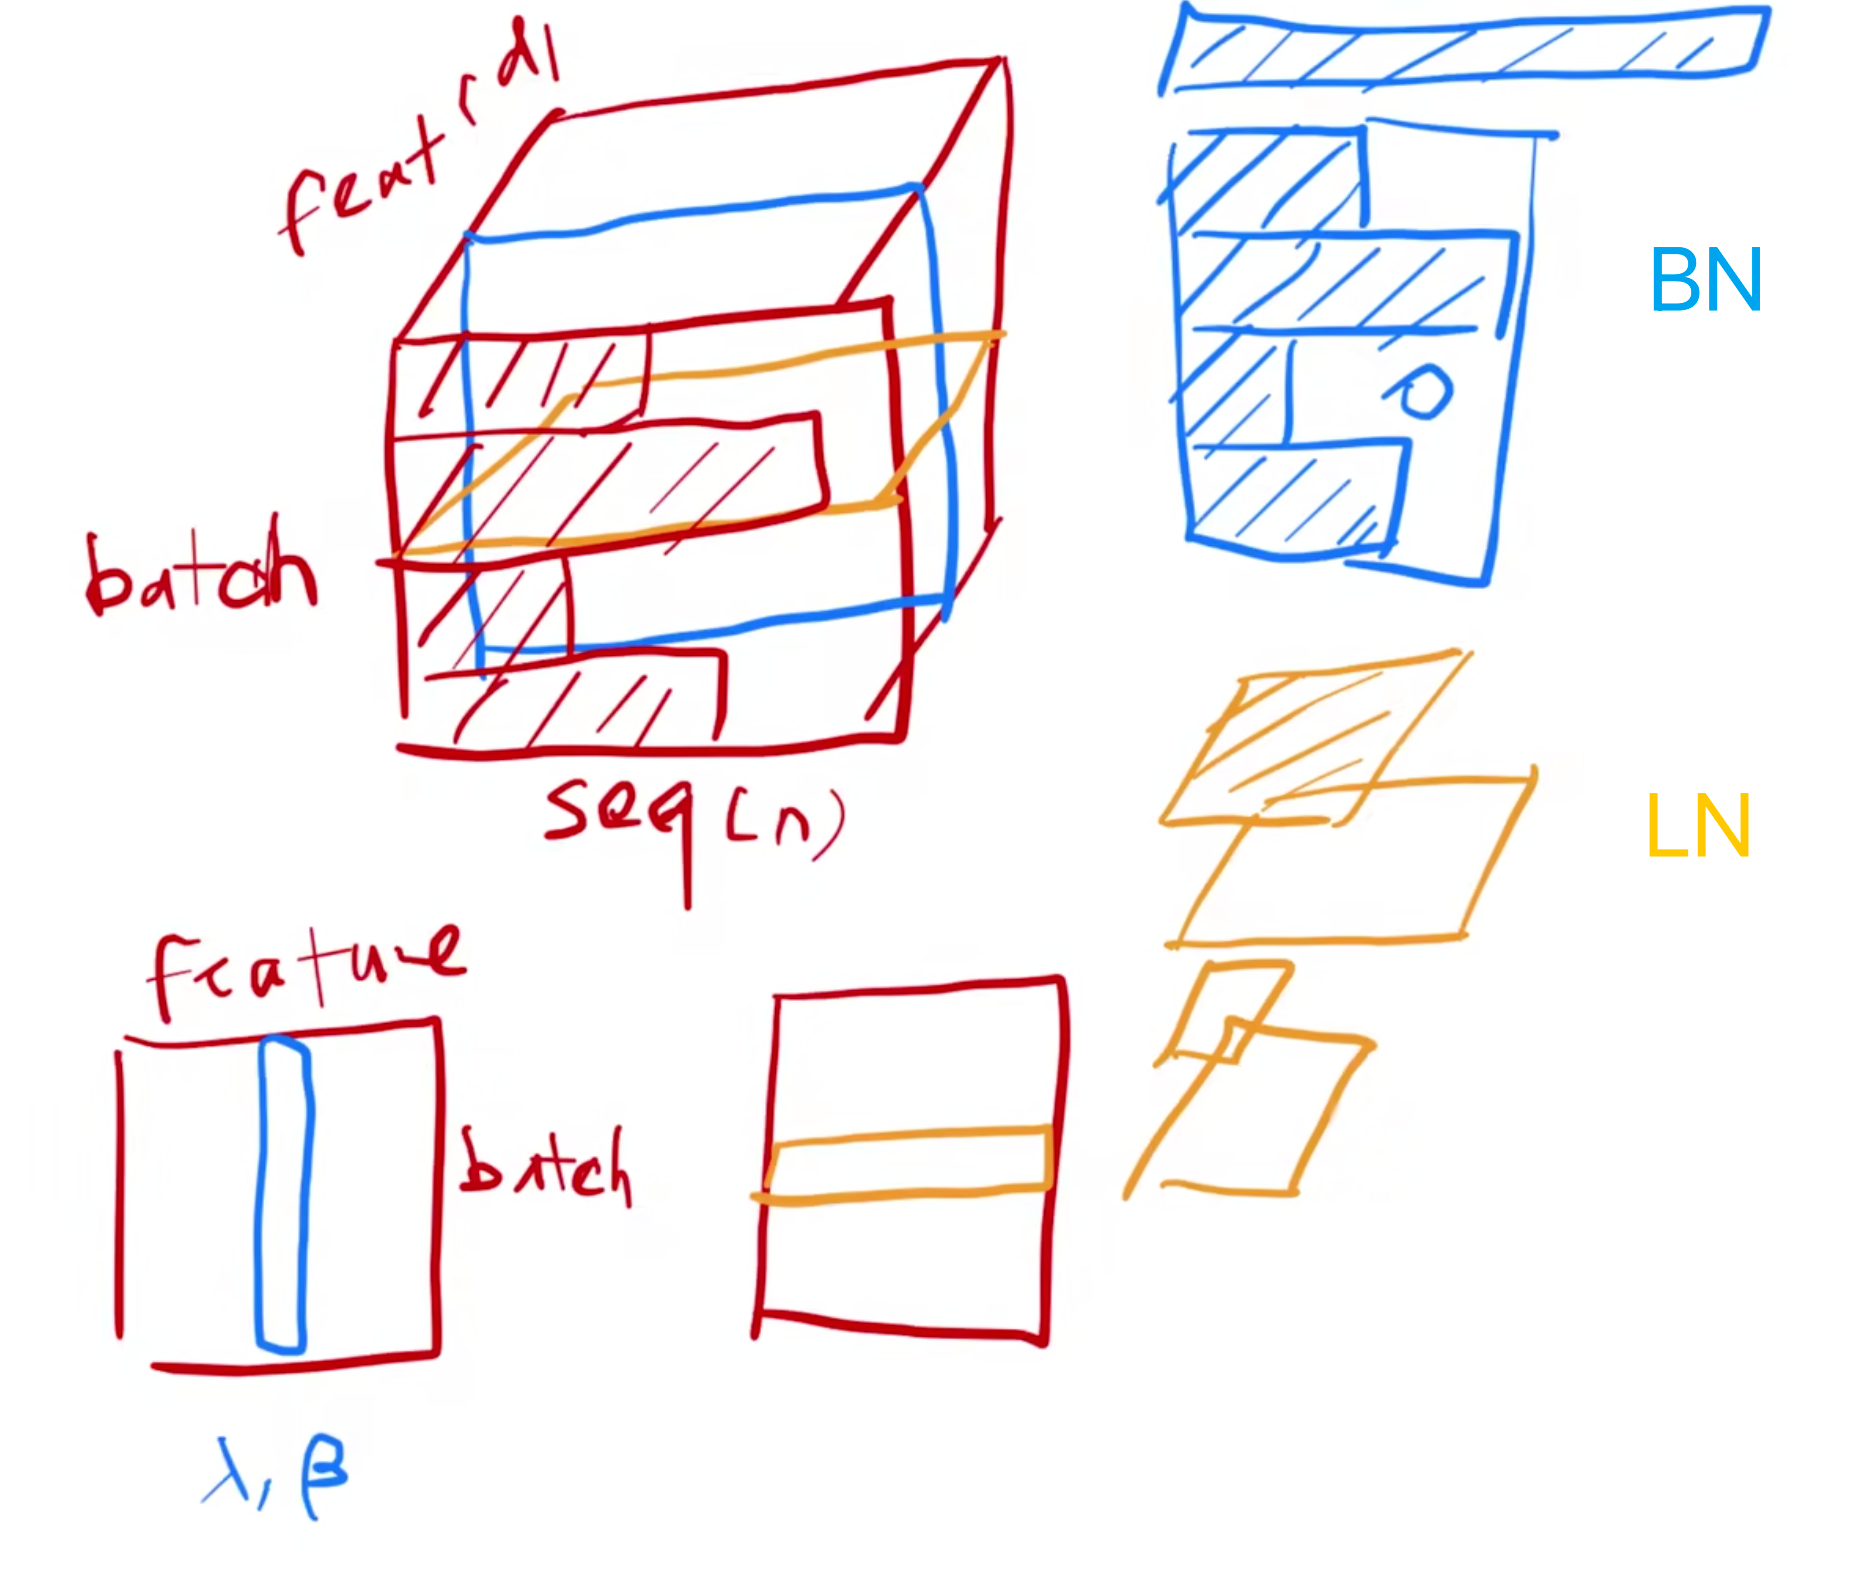 feat(d)
batch
seq(n)
BN
0
LN
feature
batch
λ, β